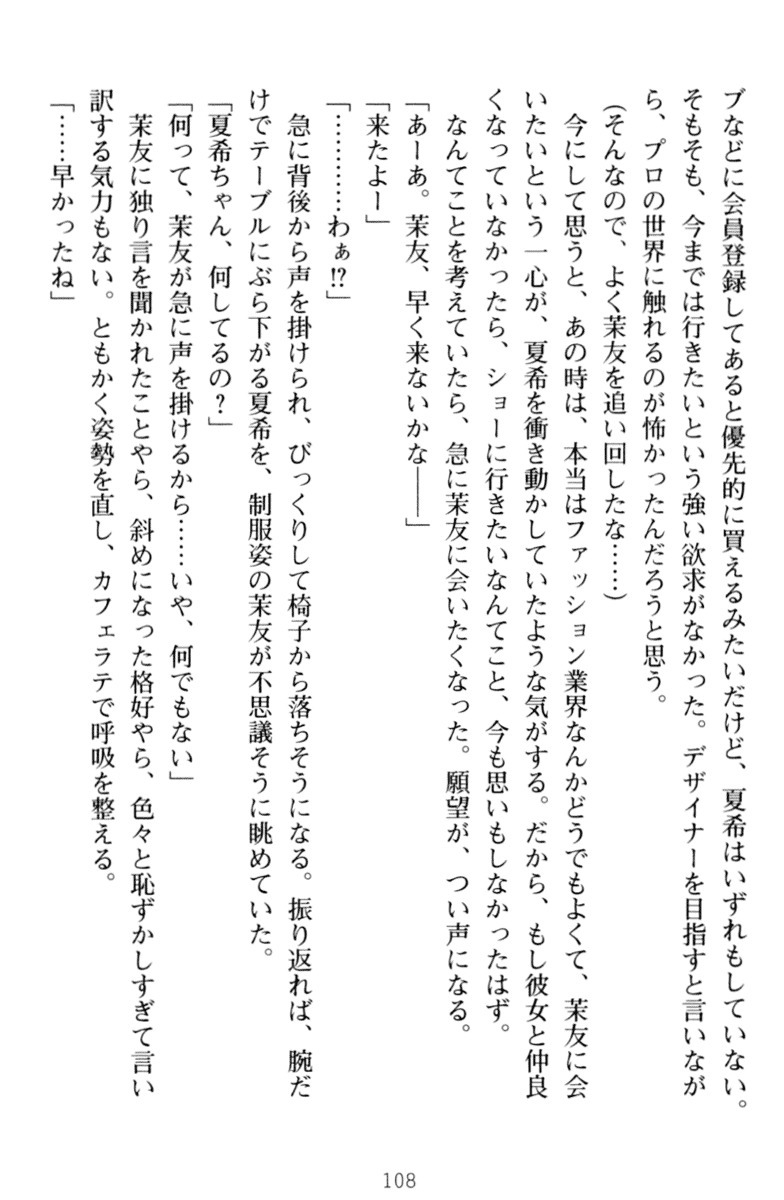 ブなどに会員登録してあると優先的に買えるみたいだけど、夏希はいずれもしていない。
そもそも、今までは行きたいという強い欲求がなかった。デザイナーを目指すと言いなが
ら、プロの世界に触れるのが怖かったんだろうと思う。
（そんなので、よく茉友を追い回したな……）
　今にして思うと、あの時は、本当はファッション業界なんかどうでもよくて、茉友に会
いたいという一心が、夏希を衝き動かしていたような気がする。だから、もし彼女と仲良
くなっていなかったら、ショーに行きたいなんてこと、今も思いもしなかったはず。
　なんてことを考えていたら、急に茉友に会いたくなった。願望が、つい声になる。
「あーあ。茉友、早く来ないかな――」
「来たよー」
「…………わぁ!?」
　急に背後から声を掛けられ、びっくりして椅子から落ちそうになる。振り返れば、腕だ
けでテーブルにぶら下がる夏希を、制服姿の茉友が不思議そうに眺めていた。
「夏希ちゃん、何してるの？」
「何って、茉友が急に声を掛けるから……いや、何でもない」
　茉友に独り言を聞かれたことやら、斜めになった格好やら、色々と恥ずかしすぎて言い
訳する気力もない。ともかく姿勢を直し、カフェラテで呼吸を整える。
「……早かったね」
108